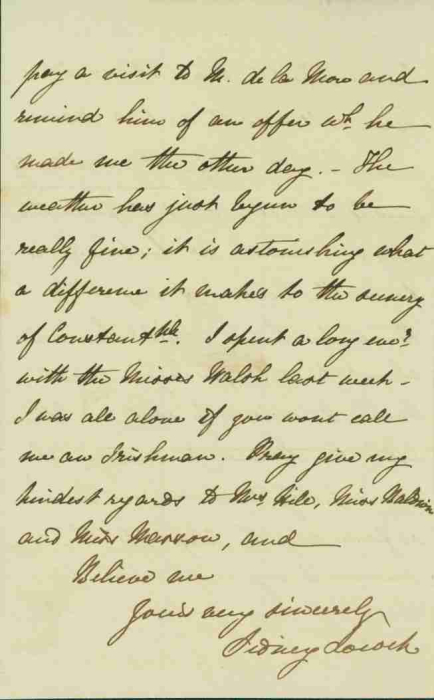 pay a visit to M. de la More and
remind him of an offer wh. he
made me the other day. – The
weather has just begun to be
really fine; it is astonishing what
a difference it makes to the scenery
of Constantple. I spent a long eveg.
with the Misses Walsh last week –
I was all alone if you wont call
me an Irishman. Pray give my
kindest regards to Mrs. Hile, Miss
and Miss Marrow, and
Believe me
Yours very sincerely
Sidney Locock